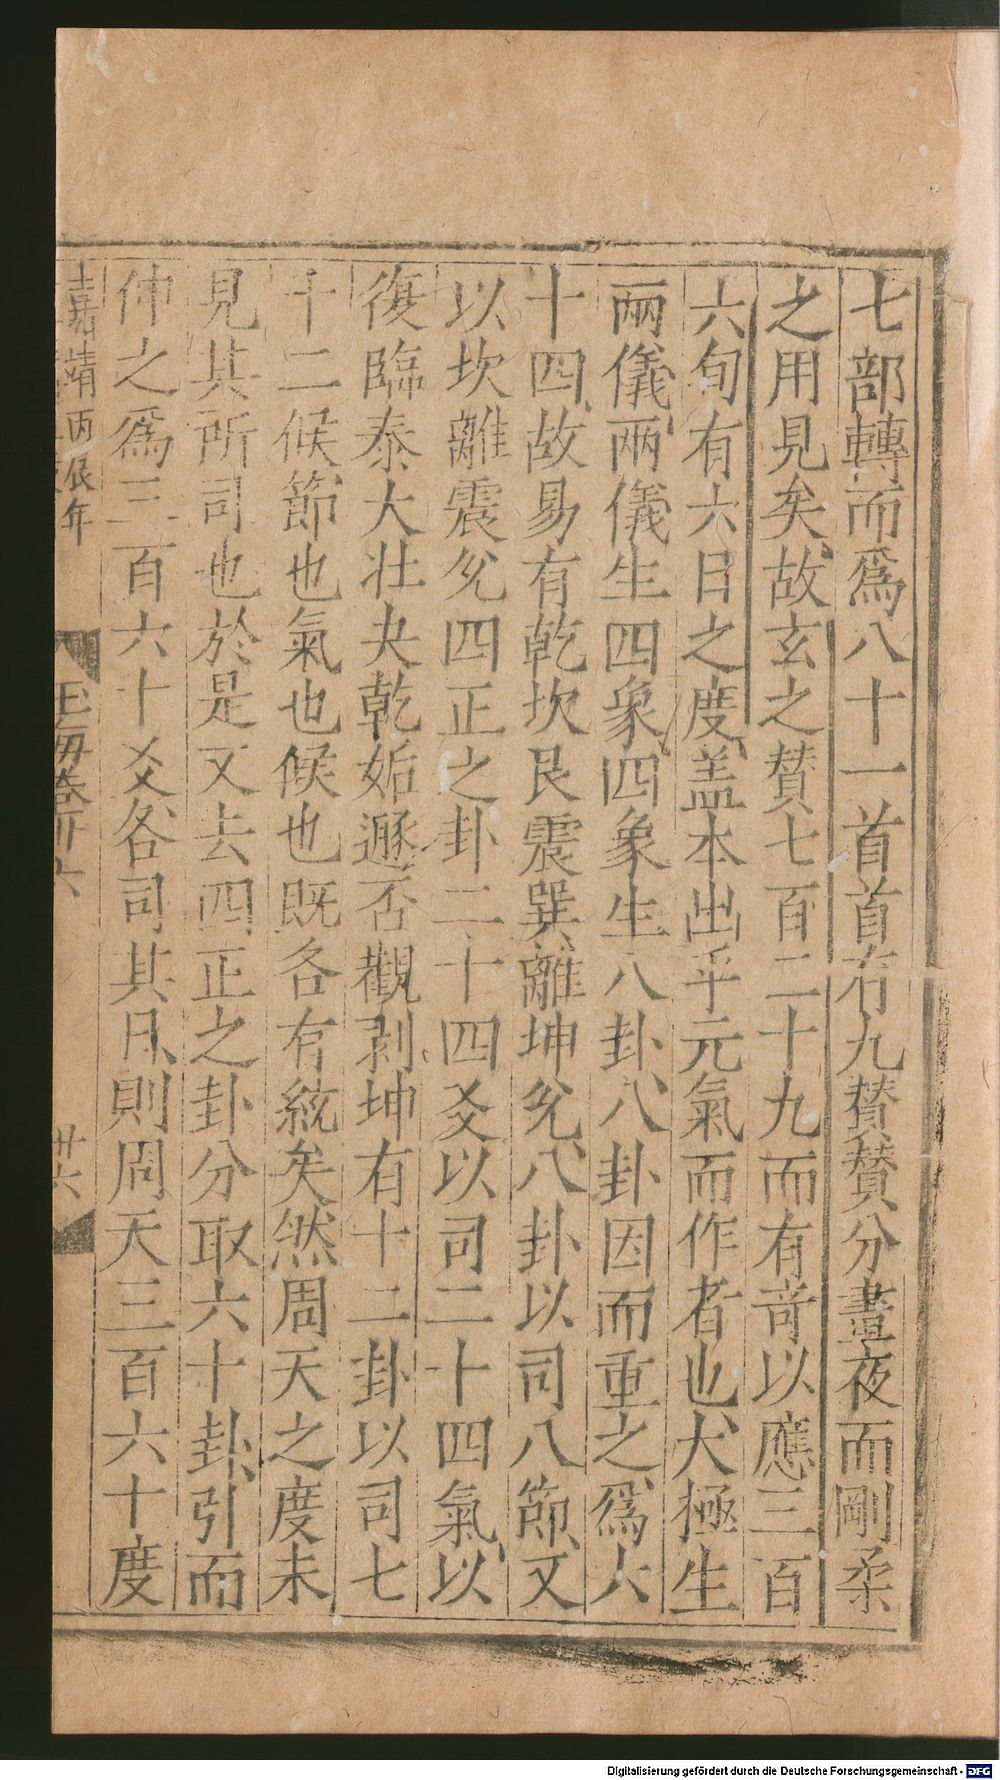 七部轉而爲八十一首首有九賛賛分晝夜而剛柔
之用見矣故玄之賛七百二十九而有竒以應三百
六旬有六日之度盖本出乎元氣而作者也太極生
兩儀兩儀生四象四象生八卦八卦因而重之爲六
十四故易有乾坎艮震巽離坤兊八卦以司八節又
以坎離震兊四正之卦二十四爻以司二十四氣以
復臨泰大壮夬乾姤遯否觀剥坤有十二卦以司七
十二候節也氣也候也既各有統矣然周天之度未
見其所司也於是又去四正之卦分取六十卦引而
伸之爲三百六十爻各司其日則周天三百六十度
嘉靖丙辰年
玉海卷卅六
卅六
Digitalisierung gefördert durch die Deutsche Forschungsgemeinschaft - DFG